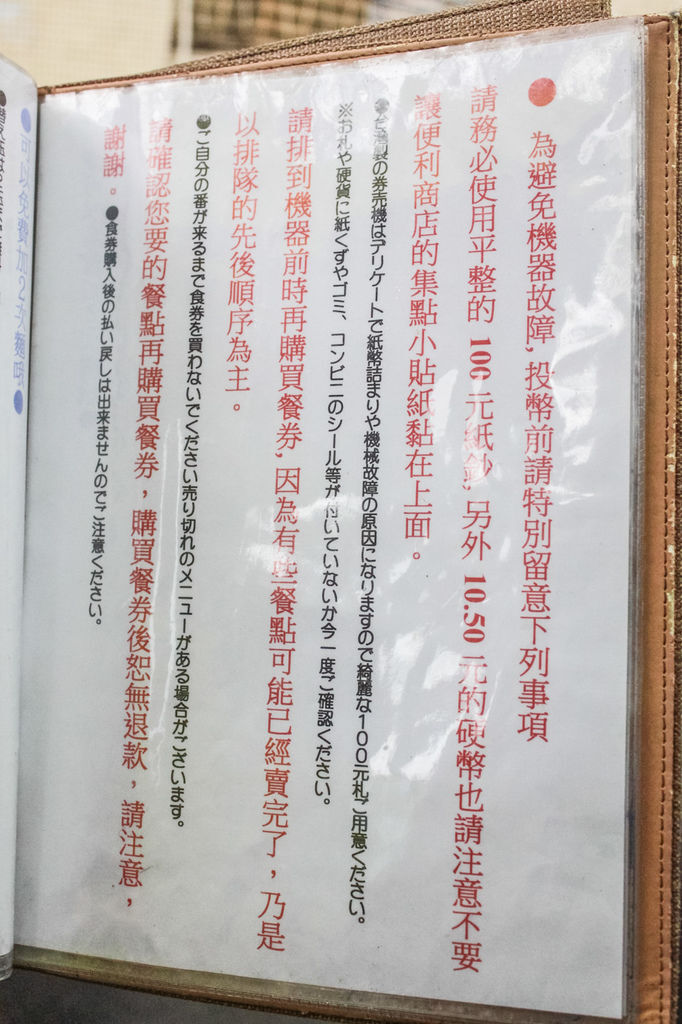 ●為避免機器故障,投幣前請特別留意下列事項
請務必使用平整的 100 元紙鈔,另外 10.50 元的硬幣也請注意不要
讓便利商店的集點小貼紙黏在上面。
●台湾製の券売機はデリケートで紙幣詰まりや機械故障の原因になりますので綺麗な100元札ご用意ください。
※お札や硬貨に紙くずやゴミ、コンビニのシール等が付いていないか今一度ご確認ください。
請排到機器前時再購買餐券,因為有些餐點可能已經賣完了,乃是
以排隊的先後順序為主。
●ご自分の番が来るまで食券を買わないでください売り切れのメニューがある場合がございます。
請確認您要的餐點再購買餐券,購買餐券後恕無退款,請注意,
謝謝。●食券購入後の払い戻しは出来ませんのでご注意ください。
●可以免費加2次麵哦●